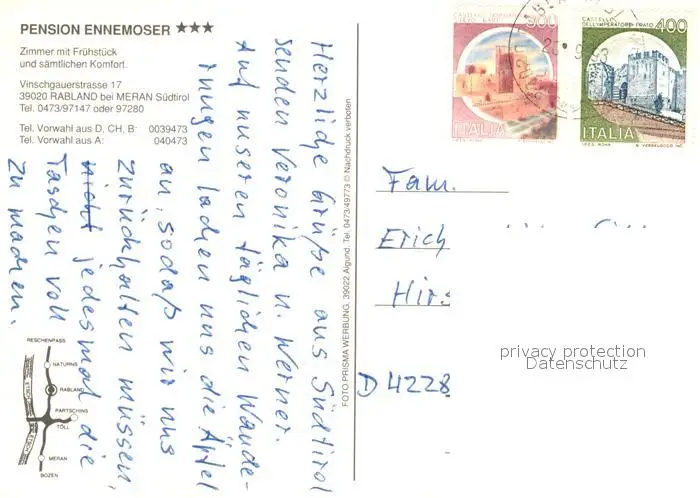 PENSION ENNEMOSER ★★★
Zimmer mit Frühstück
und sämtlichen Komfort.
Vinschgauerstrasse 17
39020 RABLAND bei MERAN Südtirol
Tel. 0473/97147 oder 97280
Tel. Vorwahl aus D, CH, B: 0039473
Tel. Vorwahl aus A: 040473
Herzliche Grüße aus Südtirol
senden Veronika u. Werner.
Auf unseren täglichen Wande-
rungen lachen uns die Äpfel
an, sodaß wir uns
zurückhalten müssen,
nicht jedesmal die
Taschen voll
zu machen.
RESCHENPASS
NATURNS
RABLAND
PARTSCHINS
TÖLL
MERAN
BOZEN
FOTO PRISMA WERBUNG, 39022 Algund, Tel. 0473/49773 © Nachdruck verboten
ITALIA
CASTELLO
DELL'IMPERATORE-PRATO 400
ITALIA
Fam.
Erich
Hir
D 4228
privacy protection
Datenschutz